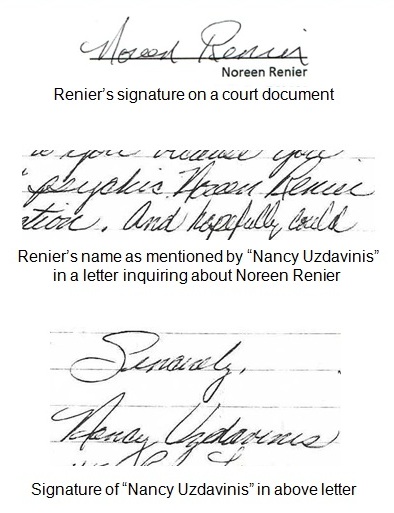 Noreen Renier
Noreen Renier
Renier's signature on a court document
to you because you
psychic Noreen Renier
ation. And hopefully could
Renier's name as mentioned by “Nancy Uzdavinis”
in a letter inquiring about Noreen Renier
Sincerely,
Nancy Uzdavinis
Signature of “Nancy Uzdavinis” in above letter